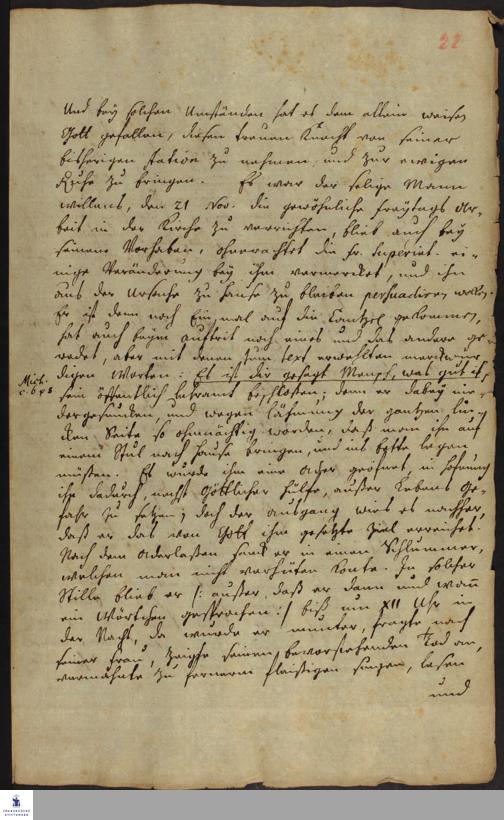 22
Und bey solchen Umständen hat es dem allein weisen
Gott gefallen, diesen treuen Knecht von seiner
bisherigen station zu nehmen, und zur ewigen
Ruhe zu bringen. Es war der selige Mann
willens, den 21 Nov. die gewöhnliche freytags Ar-
beit in der Kirche zu verrichten, blieb auch bey
seinem Vorhaben, ohnerachtet die Fr. Superint. ei-
nige Veränderung bey ihm vermercket, und ihn
aus der Ursache zu Hause zu bleiben persuadiren wollen.
Er ist denn noch Ein mal auf die Cantzel gekommen,
hat auch beym auftrit noch eines und das andere ge-
redet, aber mit denen zum text erwehlten merckwür-
digen Worten: Es ist dir gesagt Mensch, was gut ist,
Mich. c. 6 v 8
sein öffentlich Lehramt beschlossen; denn er dabey nie-
dergesuncken, und wegen Lähmung der gantzen lin-
cken Seite so ohnmächtig worden, daß man ihn auf
einem Stul nach Hause bringen, und ins bette legen
müssen. Es wurde ihm eine Ader geöfnet, in Hofnung
ihn dadurch, nechst Göttlicher Hülfe, außer Lebens Ge-
fahr zu setzen; doch der ausgang wies es nachher,
daß er das von Gott ihm gesetzte Ziel erreichet.
Nach dem Aderlaßen sanck er in einen Schlummer,
welchen man nicht verhüten konte. In solcher
Stille blieb er /: außer, daß er dann und wann
ein Wörtchen gesprochen :/ biß um XII Uhr in
der Nacht, da wurde er munter, fragte nach
seiner Frau, zeigte seinen bevorstehenden Tod an,
vermahnte zu fernerm fleißigen singen, lesen
und
FRANCKESCHE
STIFTUNGEN